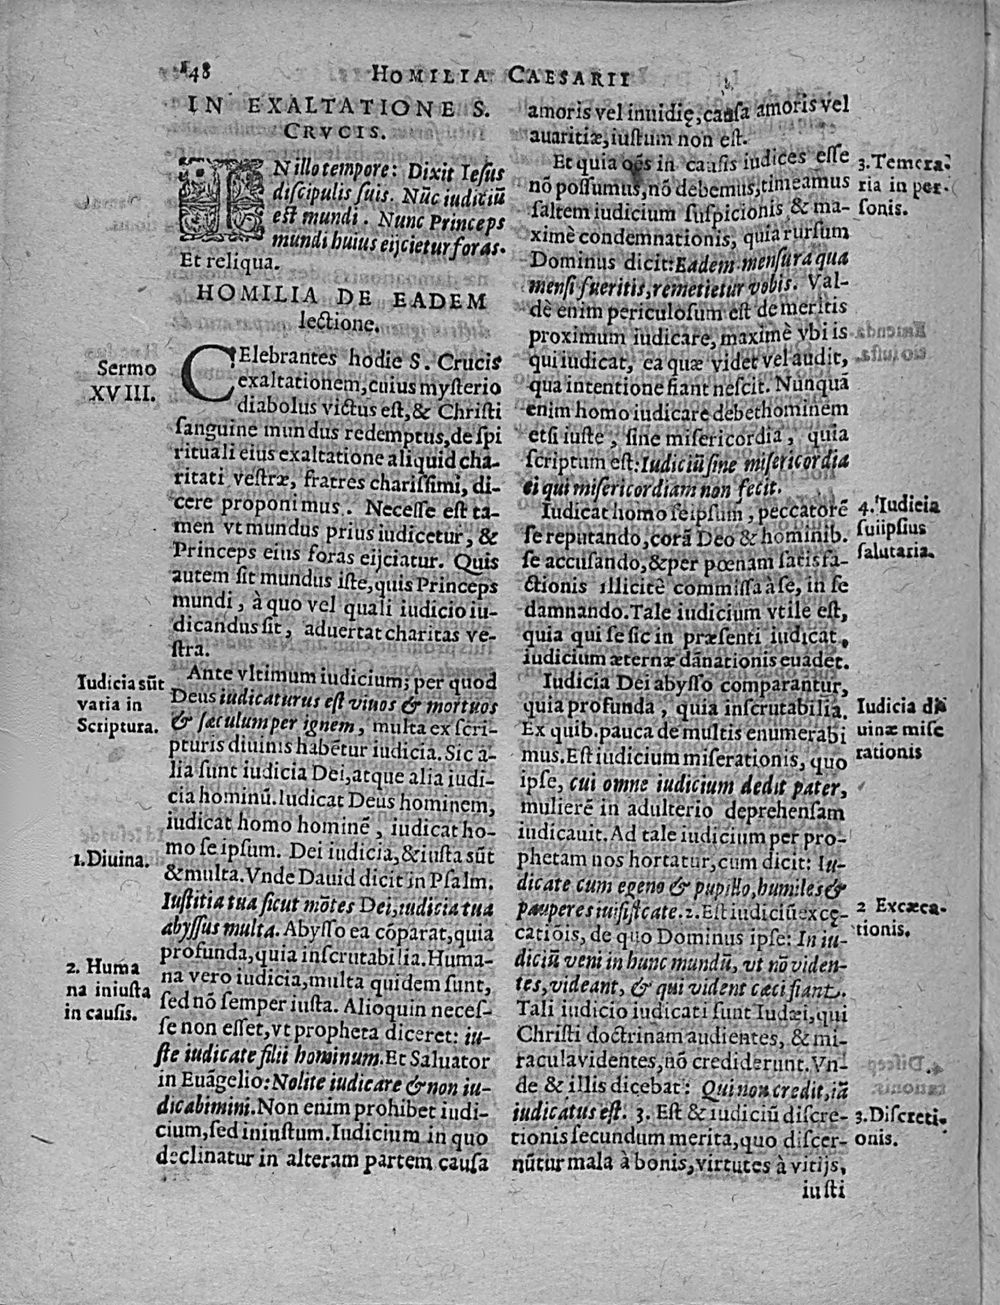 148
HOMILIA CAESARII
IN EXALTATIONE S.
CRVCIS.
IN illo tempore: Dixit Iesus
discipulis suis. Nũc iudiciũ
est mundi. Nunc Princeps
mundi huius eijcietur foras.
Et reliqua.
HOMILIA DE EADEM
lectione.
Sermo
XVIII.
CElebrantes hodie S. Crucis
exaltationem, cuius mysterio
diabolus victus est, & Christi
sanguine mundus redemptus, de spi
rituali eius exaltatione aliquid cha-
ritati vestræ, fratres charissimi, di-
cere proponimus. Necesse est ta-
men vt mundus prius iudicetur, &
Princeps eius foras eijciatur. Quis
autem sit mundus iste, quis Princeps
mundi, à quo vel quali iudicio iu-
dicandus sit, aduertat charitas ve-
stra.
Iudicia sũt
varia in
Scriptura.
Ante vltimum iudicium, per quod
Deus iudicaturus est viuos & mortuos
& sæculum per ignem, multa ex scri-
pturis diuinis habẽtur iudicia. Sic a-
lia sunt iudicia Dei, atque alia iudi-
cia hominũ. Iudicat Deus hominem,
iudicat homo hominẽ, iudicat ho-
mo se ipsum. Dei iudicia, & iusta sũt
1. Diuina.
& multa. Vnde Dauid dicit in Psalm.
Iustitia tua sicut mõtes Dei, iudicia tua
abyssus multa. Abysso ea cõparat, quia
profunda, quia inscrutabilia. Huma-
2. Huma
na iniusta
in causis.
na vero iudicia, multa quidem sunt,
sed nõ semper iusta. Alioquin neces-
se non esset, vt propheta diceret: iu-
ste iudicate filii hominum. Et Saluator
in Euãgelio: Nolite iudicare & non iu-
dicabimini. Non enim prohibet iudi-
cium, sed iniustum. Iudicium in quo
declinatur in alteram partem causa
amoris vel inuidię, causa amoris vel
auaritiæ, iustum non est.
3. Temera-
ria in per-
sonis.
Et quia oẽs in causis iudices esse
nõ possumus, nõ debemus, timeamus
saltem iudicium suspicionis & ma-
ximè condemnationis, quia rursum
Dominus dicit: Eadem mensura qua
mensi fueritis, remetietur vobis. Val-
dè enim periculosum est de meritis
proximum iudicare, maximè vbi is
qui iudicat, ea quæ videt vel audit,
qua intentione fiant nescit. Nunqua
enim homo iudicare debet hominem
etsi iuste, sine misericordia, quia
scriptum est: Iudiciũ sine misericordia
ei qui misericordiam non fecit.
4. Iudicia
suiipsius
salutaria.
Iudicat homo seipsum, peccatorẽ
se reputando, corã Deo & hominib.
se accusando, & per pœnam satisfa-
ctionis illicitè commissa à se, in se
damnando. Tale iudicium vtile est,
quia qui se sic in præsenti iudicat,
iudicium æternæ dãnationis euadet.
Iudicia di
uinæ mise
rationis
Iudicia Dei abysso comparantur,
quia profunda, quia inscrutabilia.
Ex quib. pauca de multis enumerabi
mus. Est iudicium miserationis, quo
ipse, cui omne iudicium dedit pater,
mulierẽ in adulterio deprehensam
iudicauit. Ad tale iudicium per pro-
phetam nos hortatur, cum dicit: Iu-
dicate cum egeno & pupillo, humiles &
2 Excæca-
tionis.
pauperes iustificate. 2. Est iudiciũ excę-
catiõis, de quo Dominus ipse: In iu-
diciũ veni in hunc mundũ, vt nõ viden-
tes, videant, & qui vident cæci fiant.
Tali iudicio iudicati sunt Iudæi, qui
Christi doctrinam audientes, & mi-
racula videntes, nõ crediderunt. Vn-
de & illis dicebat: Qui non credit, iã
3. Discreti-
onis.
iudicatus est. 3. Est & iudiciũ discre-
tionis secundum merita, quo discer-
nũtur mala à bonis, virtutes à vitijs,
iusti